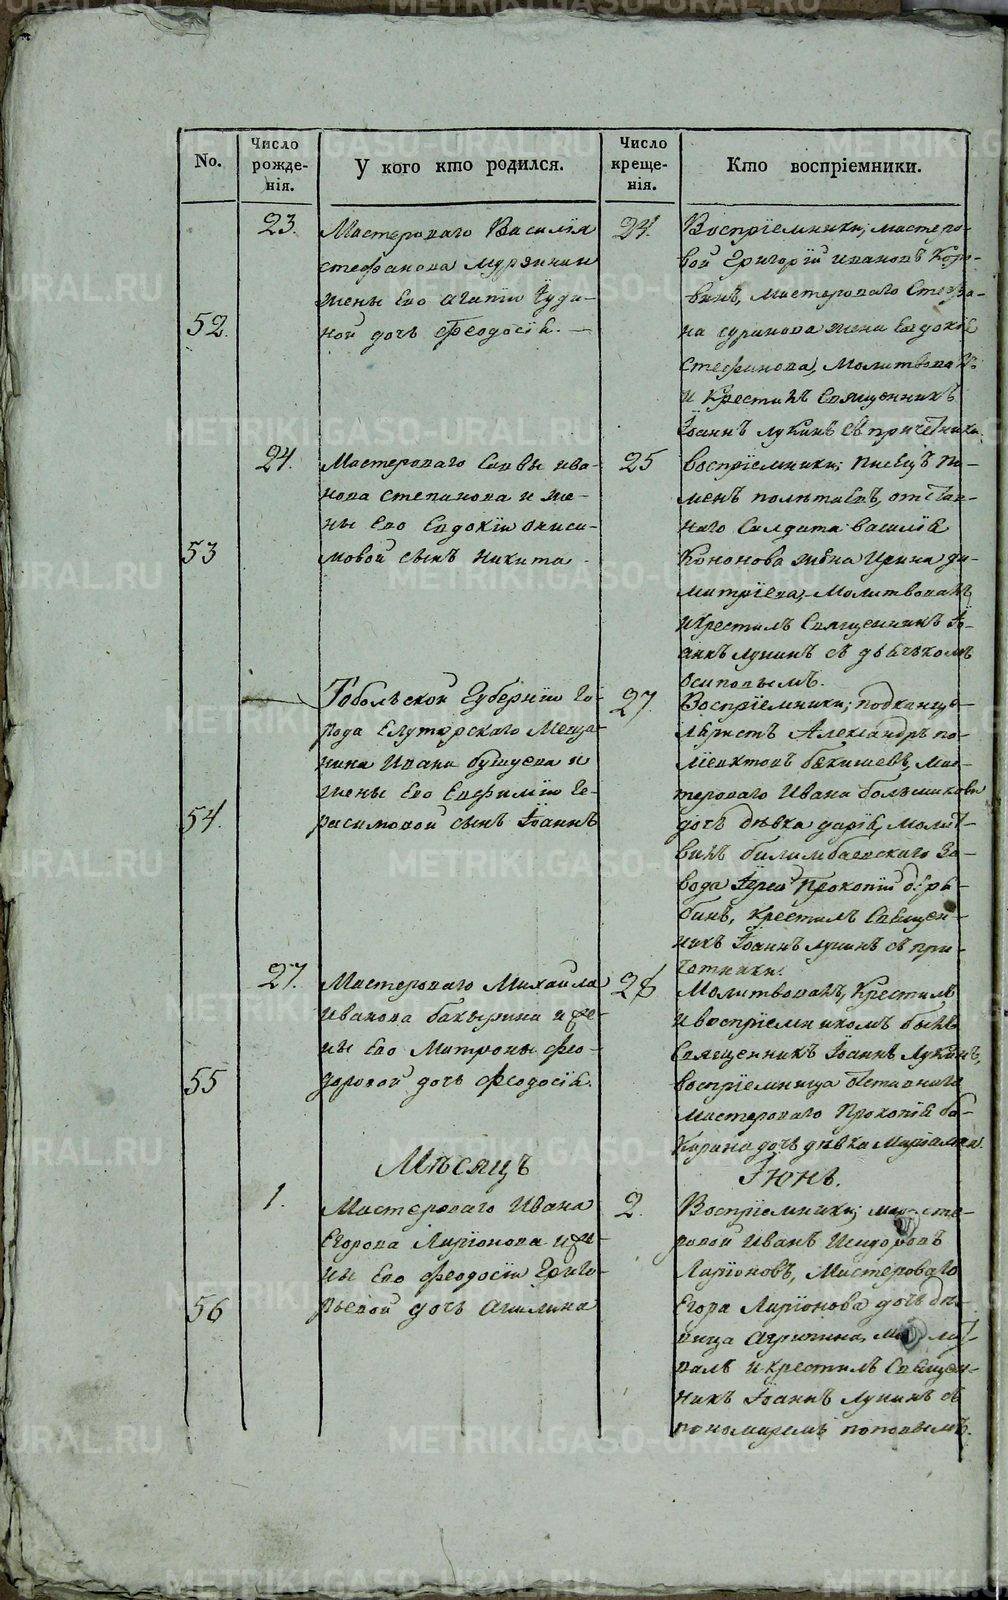 No.
Число
рожде-
нія.
У кого кто родился.
Число
креще-
нія.
Кто воспріемники.
52.
23.
Мастероваго Василія
стефанова
жены Его Агапіи Іуди-
ной дочь Феодосія.
24.
Воспріемники; мастеро-
вой Григорій Ивановъ
Мастероваго Стефа-
на жена Евдокія
Стефанова, Молитвовалъ
и Крестилъ Священникъ
Іоаннъ Лукинъ съ причетники.
53
24.
Мастероваго Саввы ива-
нова степанова и же-
ны Его Евдокіи Аниси-
мовой сынъ Никита
25
воспріемники; писецъ Пи-
менъ отстав-
наго Салдата василія
Кононова жена Ирина ди-
митріева, Молитвовалъ
и Крестилъ Священникъ Іо-
аннъ лукинъ съ дьячкомъ
осиповымъ.
54.
Тобольской Губерніи Го-
рода Елуторскаго Меща-
нина Ивана бушуева и
жены Его Евфиміи Ге-
расимовой сынъ Іоаннъ
27
Воспріемники; подканце-
ляристъ Александръ по-
лієвктовъ Мас-
тероваго Ивана большикова
дочь дѣвка дарія, молит-
вилъ билимбаевскаго За-
вода Іерей Прокопій
Крестилъ Священ-
никъ Іоаннъ лукинъ съ при-
четники.
55
27.
Мастероваго Михаила
Иванова и же-
ны Его Матроны Фео-
доровой дочь Феодосія.
28
Молитвовалъ, Крестилъ
и воспріемникомъ былъ
Священникъ Іоаннъ Лукинъ,
воспріемница отставнаго
мастероваго Прокопія ба-
кирина дочь дѣвка
Мѣсяцъ
Іюнь.
56
1.
Мастероваго Ивана
Егорова Ларіонова и же-
ны Его Феодосіи Григо-
рьевой дочь Акилина
2.
Воспріемники; мастe-
ровой Иванъ Исидоровъ
Ларіоновъ, Мастероваго
Егора Ларіонова дочь дѣ-
вица Агрипина, молит-
валъ и крестилъ Священ-
никъ Іоаннъ Лукинъ съ
пономаремъ поповымъ.
METRIKI.GASO-URAL.RU